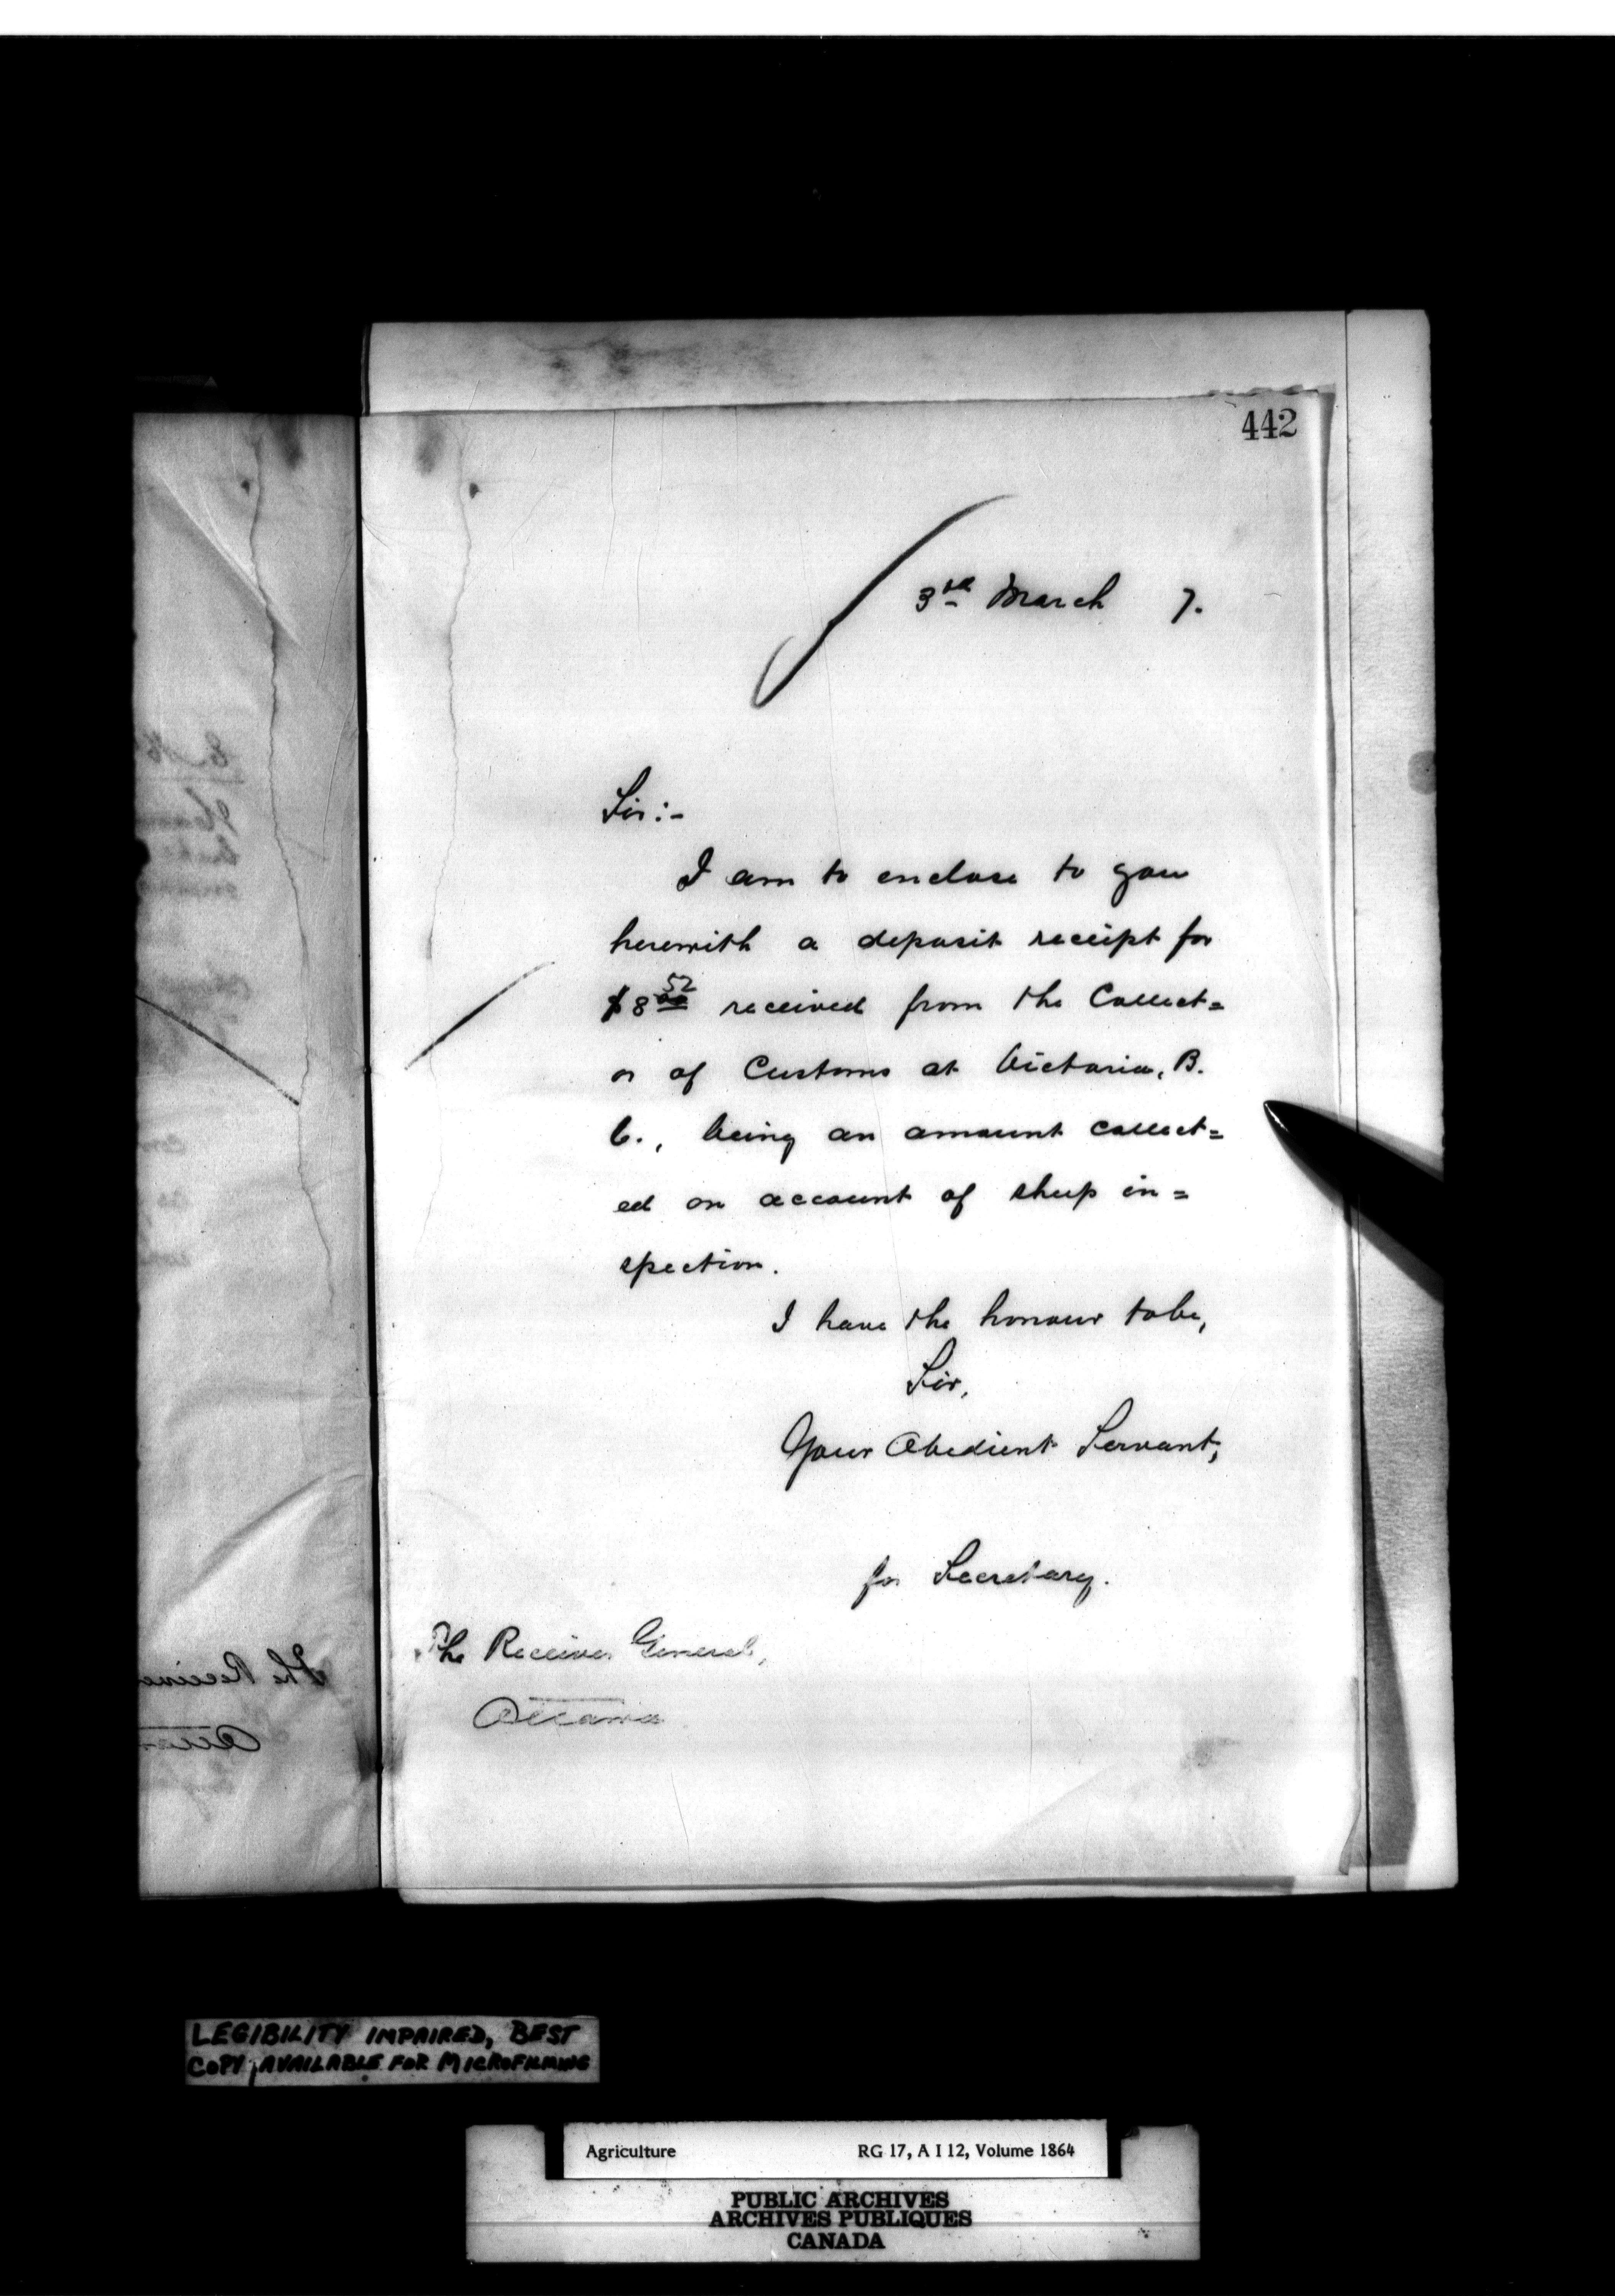 442
3rd March 7.
Sir:-
I am to enclose to you
herewith a deposit receipt for
$8 52 received from the Collect=
or of Customs at Victoria, B.
C., being an amount collect=
ed on account of sheep in=
spection.
I have the honour to be,
Sir,
Your Obedient Servant,
for Secretary.
The Receiver General,
Ottawa
LEGIBILITY IMPAIRED, BEST
COPY AVAILABLE FOR MICROFILMING
Agriculture RG 17, A I 12, Volume 1864
PUBLIC ARCHIVES
ARCHIVES PUBLIQUES
CANADA